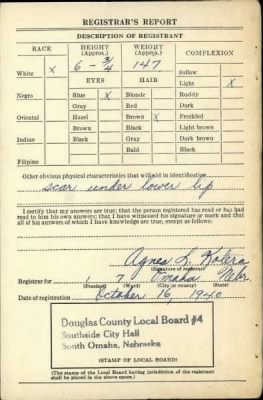 REGISTRAR'S REPORT
DESCRIPTION OF REGISTRANT
RACE HEIGHT (Approx.) WEIGHT (Approx.) COMPLEXION
6 - 3/4 147 Sallow
White X EYES HAIR Light X
Negro Blue X Blonde Ruddy
Gray Red Dark
Oriental Hazel Brown X Freckled
Brown Black Light brown
Indian Black Gray Dark brown
Bald Black
Filipino
Other obvious physical characteristics that will aid in identification
scar under lower lip
I certify that my answers are true; that the person registered has read or has had
read to him his own answers; that I have witnessed his signature or mark and that
all of his answers of which I have knowledge are true, except as follows:
Agnes L. Kolera
(Signature of registrar)
Registrar for 1 7 Omaha Nebr
(Precinct) (Ward) (City or county) (State)
Date of registration October 16, 1940
Douglas County Local Board #4
Southside City Hall
South Omaha, Nebraska
(STAMP OF LOCAL BOARD)
(The stamp of the Local Board having jurisdiction of the registrant
shall be placed in the above space.)